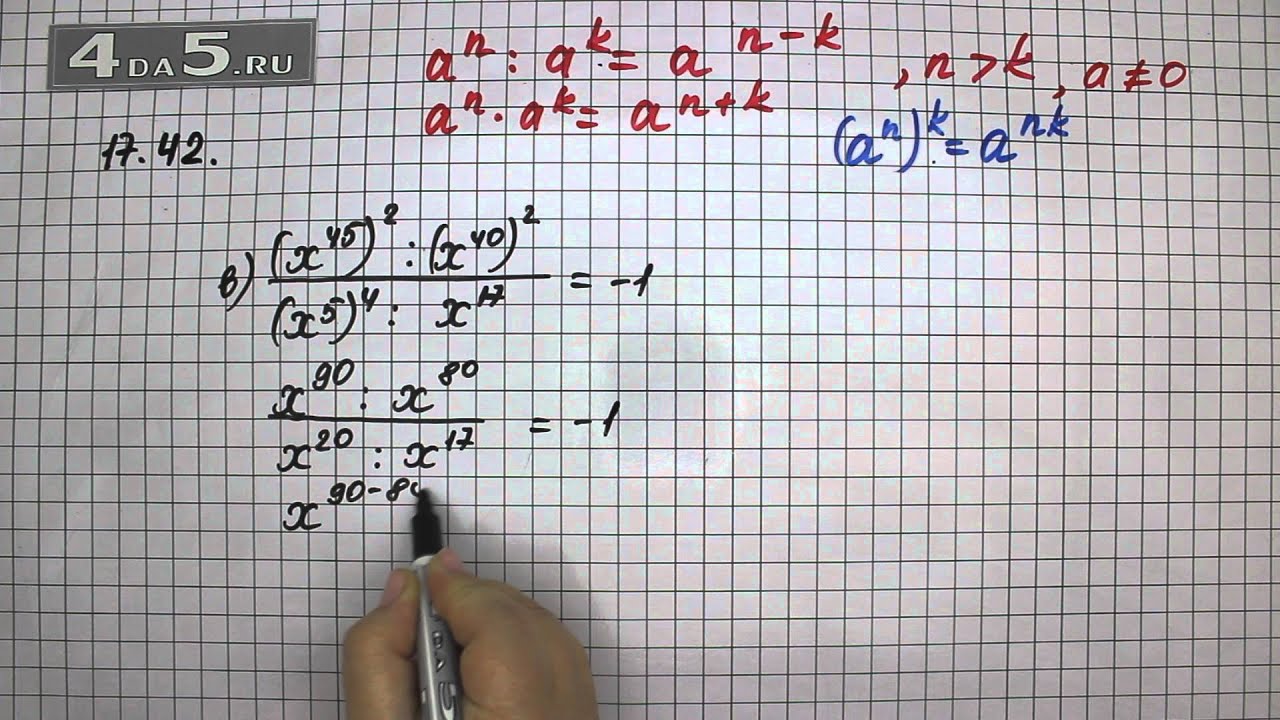 4DA5.RU
aⁿ : aᵏ = aⁿ⁻ᵏ , n > k , a ≠ 0
aⁿ · aᵏ = aⁿ⁺ᵏ
(aⁿ)ᵏ = aⁿᵏ
17.42.
в) ((x⁴⁵)² : (x⁴⁰)²) / ((x⁵)⁴ : x¹⁷) = -1
(x⁹⁰ : x⁸⁰) / (x²⁰ : x¹⁷) = -1
x⁹⁰⁻⁸
ВДА5